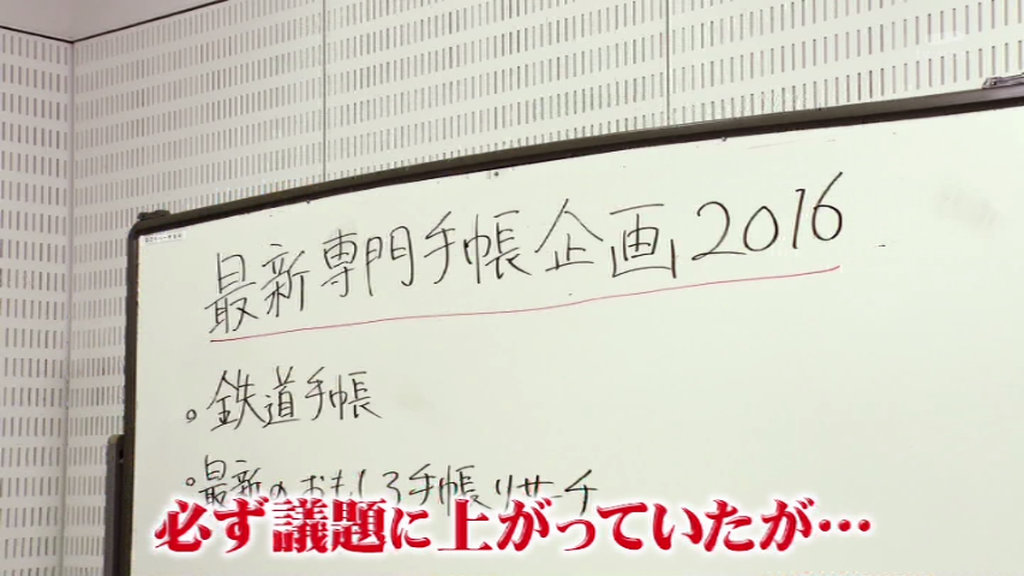 最新専門手帳企画2016
。鉄道手帳
。最新のおもしろ手帳リサーチ
必ず議題に上がっていたが…